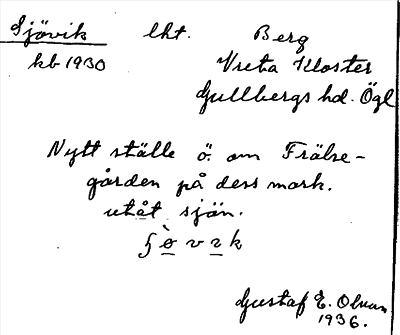 Sjövik lht. Berg
kb 1930 Vreta Kloster
Gullbergs hd. Ögl
Nytt ställe ö. om Frälse-
gården på dess mark.
utåt sjön.
Gustaf E.
1936.